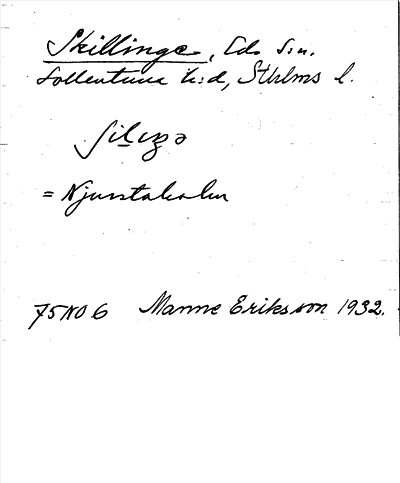 Skillinge, Eds sn.
Sollentuna h:d, Sthlms l.
= Njurstaholm
75NO6 Manne Eriksson 1932.